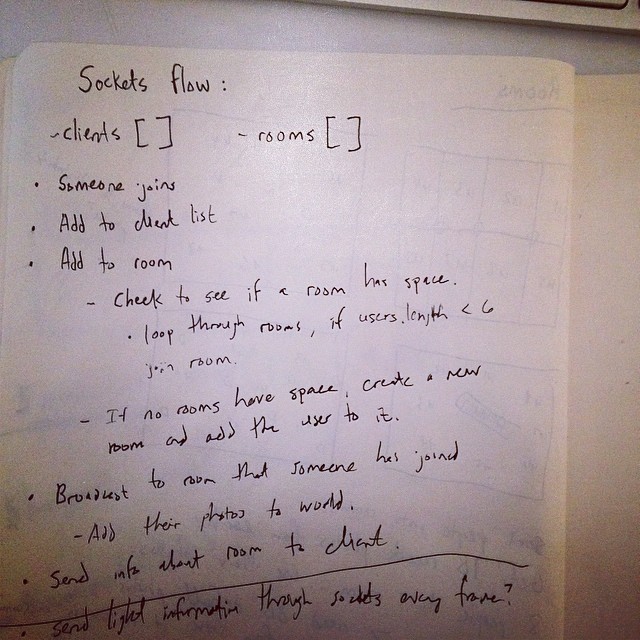 Sockets flow :
- clients [ ] - rooms [ ]
• Someone joins
• Add to client list
• Add to room
- Check to see if a room has space.
• loop through rooms, if users.length < 6
join room.
- If no rooms have space, create a new
room and add the user to it.
• Broadcast to room that someone has joined
- Add their photos to world.
• Send info about room to client.
• Send light information through sockets every frame?